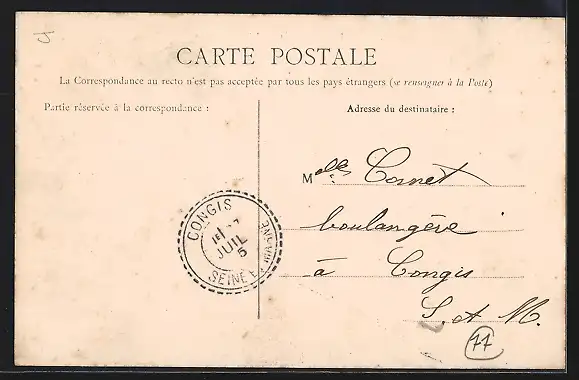 CARTE POSTALE
La Correspondance au recto n'est pas acceptée par tous les pays étrangers (se renseigner à la Poste)
Partie réservée à la correspondance :
Adresse du destinataire :
Melles Cornet
boulangère
à Congis
S. et M.
77
CONGIS
JUIL
5
SEINE ET MARNE